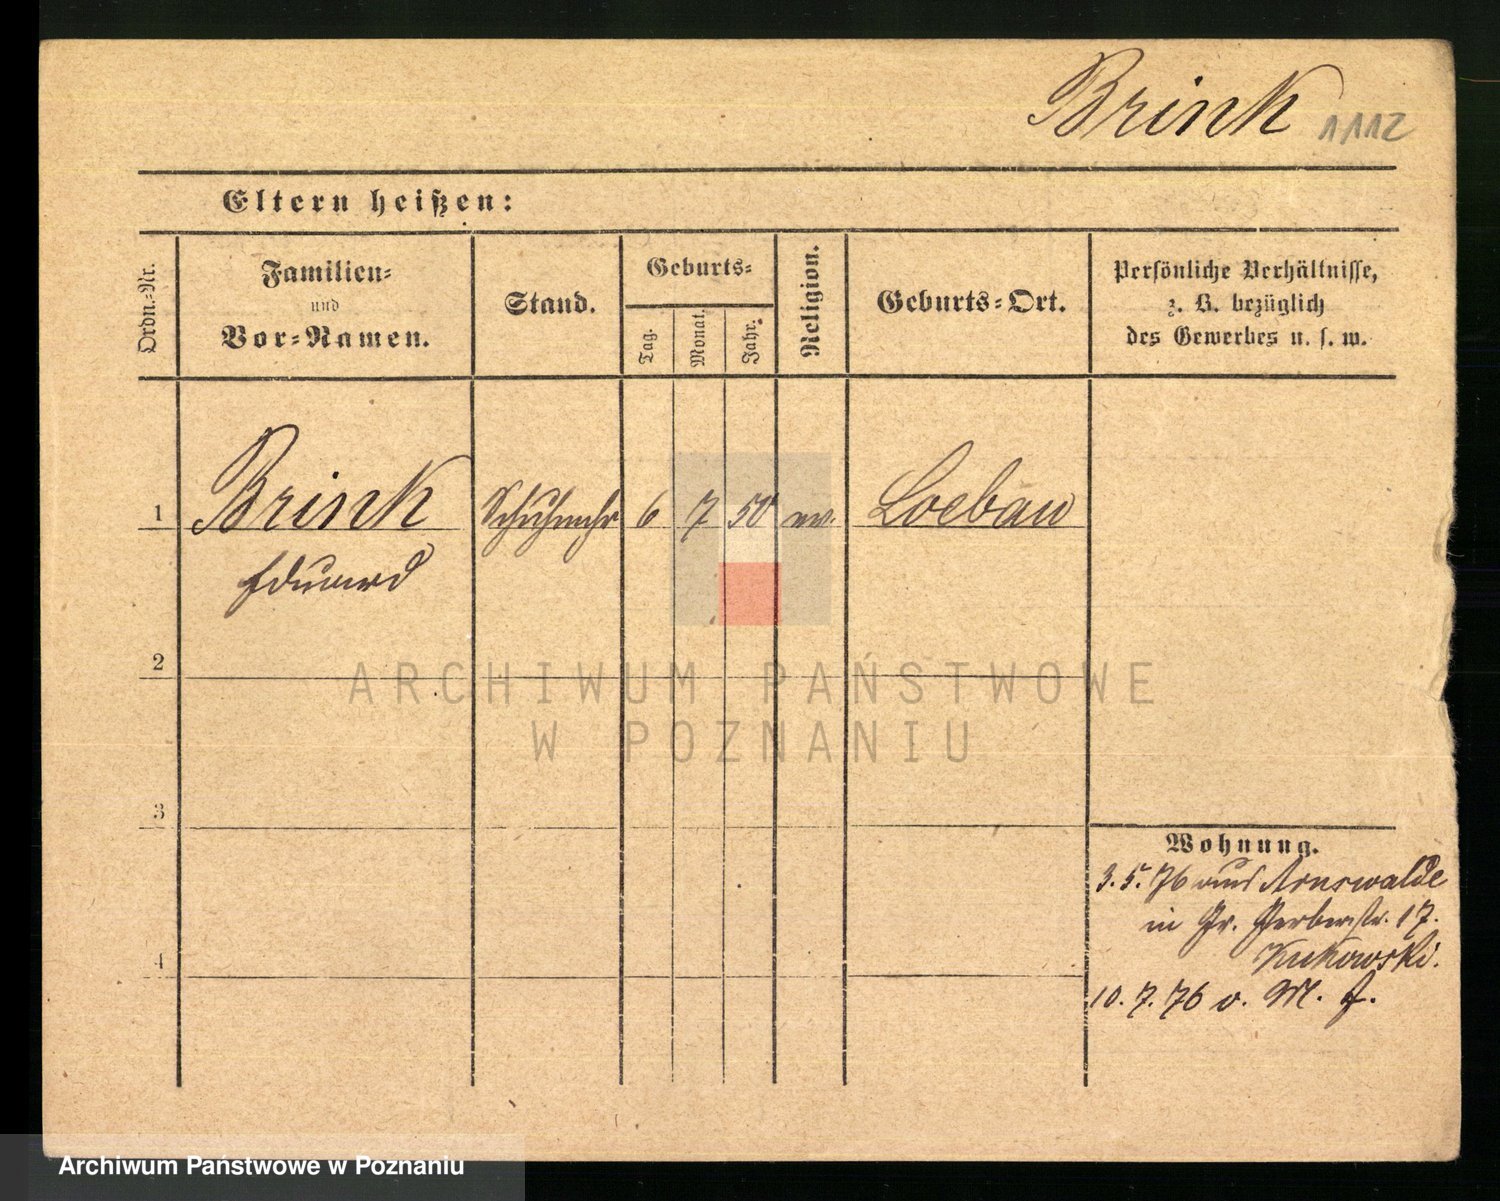 Brink 1112
Eltern heißen:
Ordn.=Nr.
Familien=
und
Vor=Namen.
Stand.
Geburts=
Tag.
Monat.
Jahr.
Religion.
Geburts=Ort.
Persönliche Verhältnisse,
z. B. bezüglich
des Gewerbes u. s. w.
1 Brink Schuhmchr 6 7 50 ev. Loebau
Eduard
2
ARCHIWUM PAŃSTWOWE
W POZNANIU
3
Wohnung.
3.5.76 aus Arnswalde
in Gr. Gerberstr. 17.
Kukowski.
4
10.7.76 v. M. f.
Archiwum Państwowe w Poznaniu